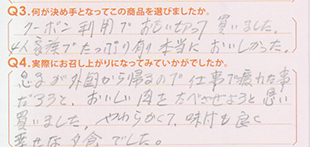 Q3.何が決め手となってこの商品を選びましたか。
クーポン利用でおもいきって買いました。
4人家族でたっぷり有り本当においしかった。
Q4.実際にお召し上がりになってみていかがでしたか。
息子が外国から帰るので仕事で疲れた事
だろうと、おいしい肉をたべさせようと思い
買いました。やわらかくて、味付も良く
幸せな夕食でした。